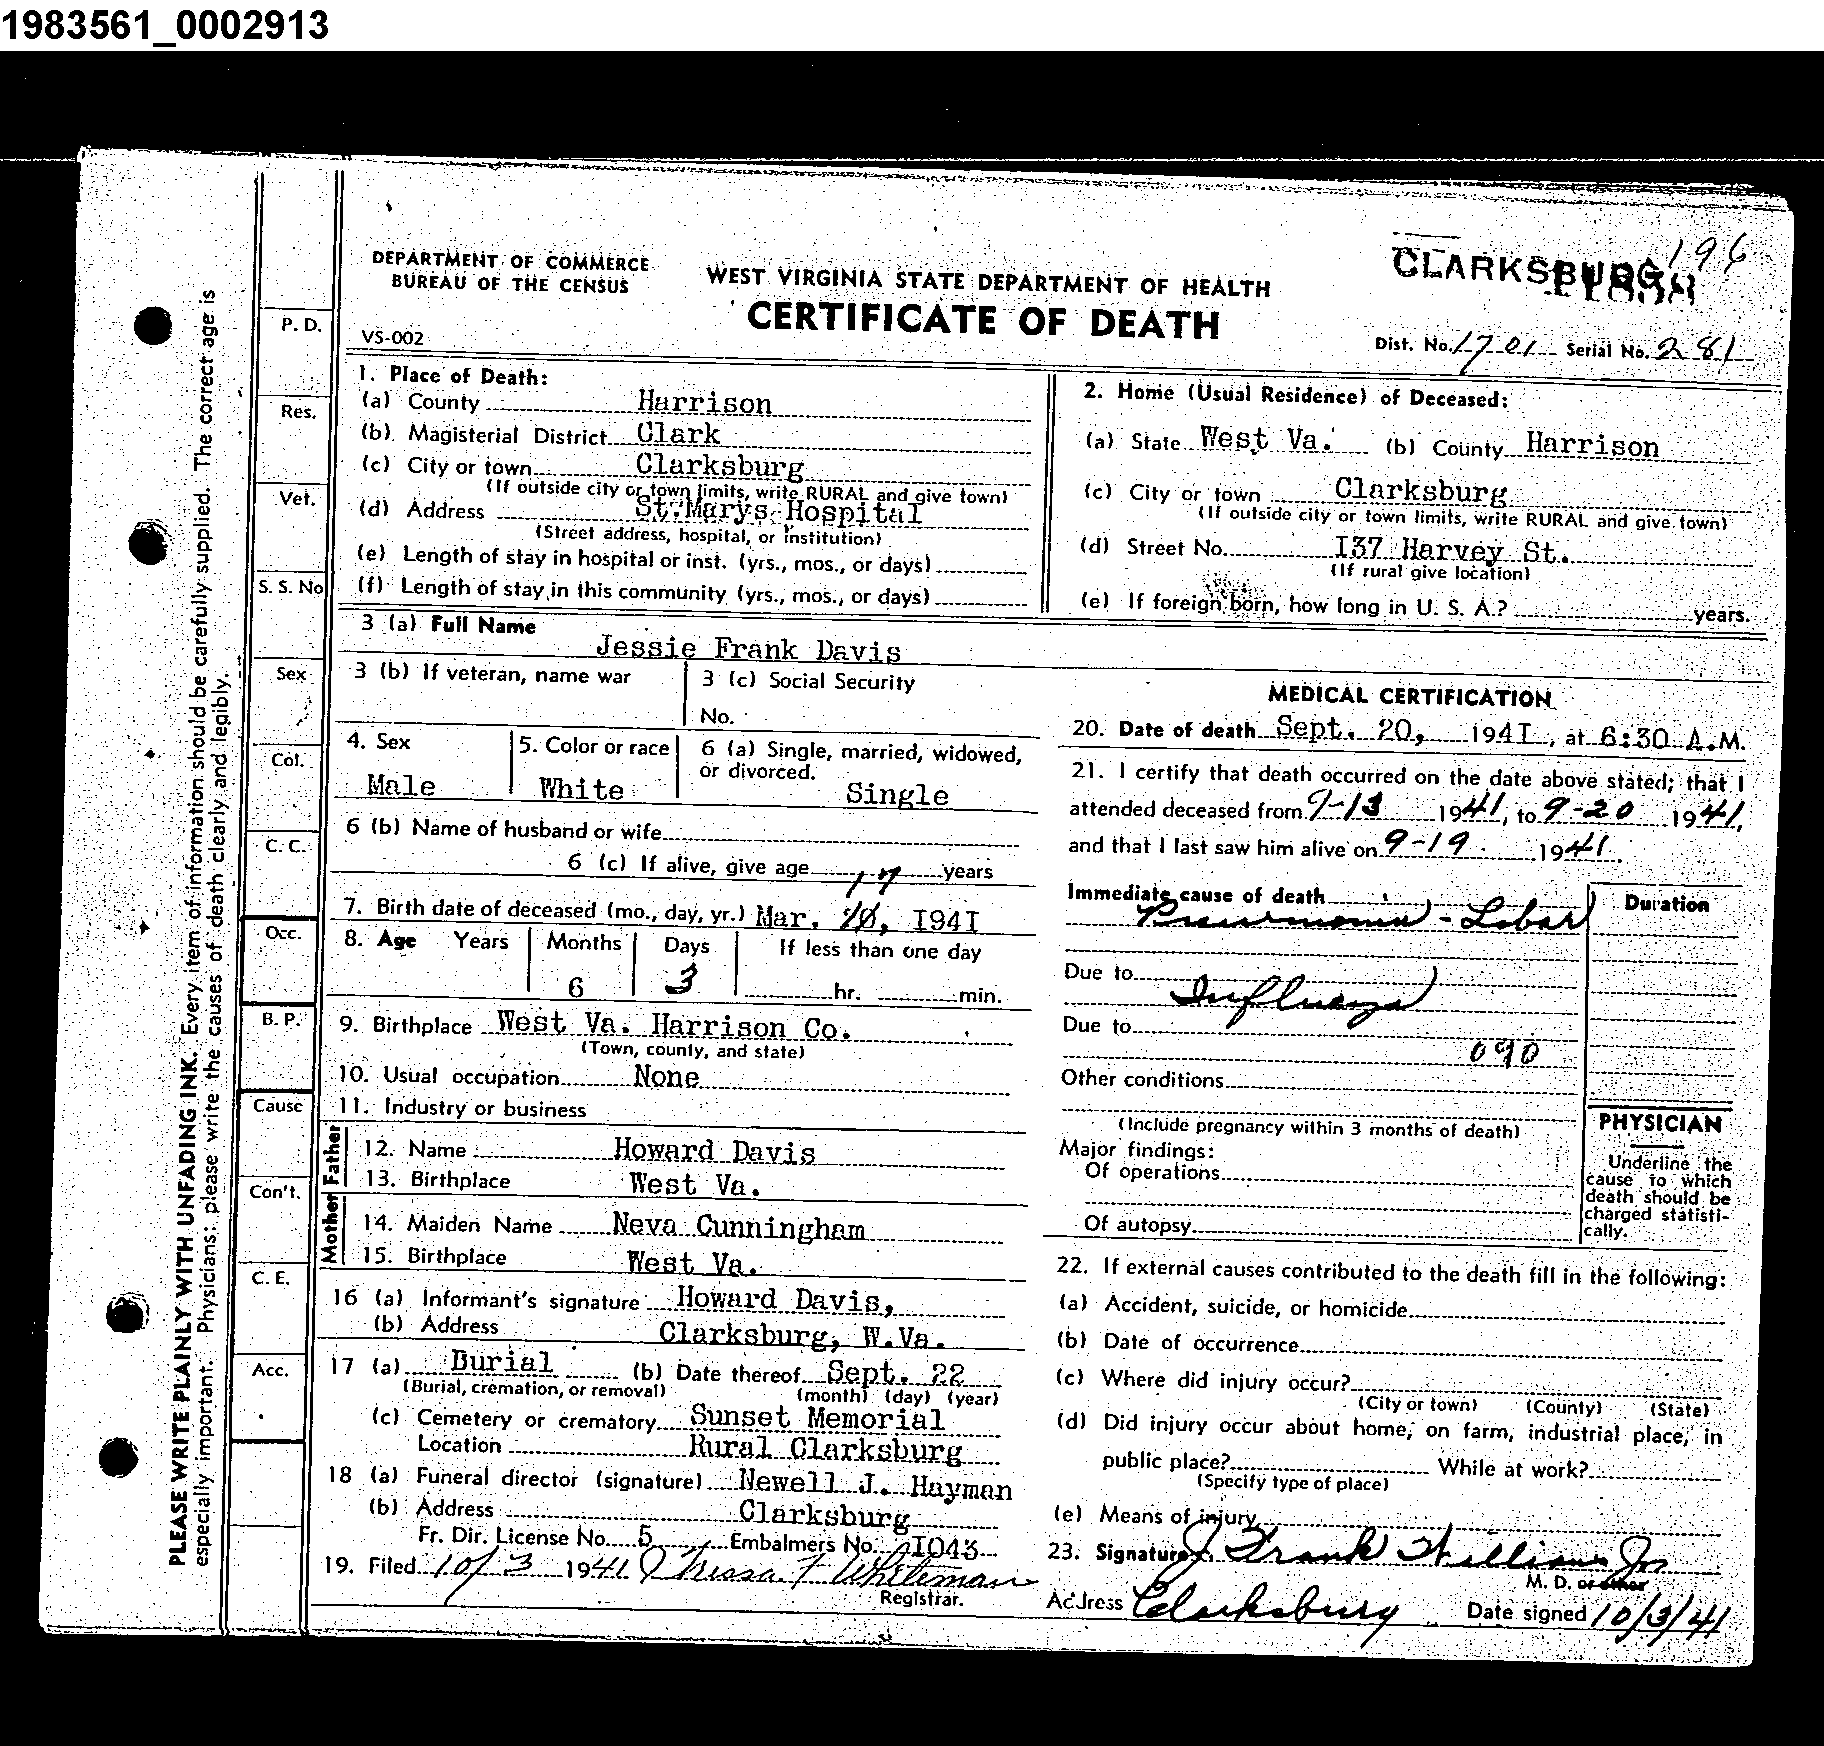 1983561_0002913
DEPARTMENT OF COMMERCE
BUREAU OF THE CENSUS
VS-002
WEST VIRGINIA STATE DEPARTMENT OF HEALTH
CERTIFICATE OF DEATH
196
CLARKSBURG
Dist. No. 1701 Serial No. 281
PLEASE WRITE PLAINLY WITH UNFADING INK. Every item of information should be carefully supplied. The correct age is
especially important. Physicians: please write the causes of death clearly and legibly.
P. D.
Res.
Vet.
S. S. No
Sex
Col.
C. C.
Occ.
B. P.
Cause
Con't.
C. E.
Acc.
1. Place of Death:
(a) County Harrison
(b) Magisterial District Clark
(c) City or town Clarksburg
(If outside city or town limits, write RURAL and give town)
(d) Address St.Marys Hospital
(Street address, hospital, or institution)
(e) Length of stay in hospital or inst. (yrs., mos., or days)
(f) Length of stay in this community (yrs., mos., or days)
2. Home (Usual Residence) of Deceased:
(a) State West Va. (b) County Harrison
(c) City or town Clarksburg
(If outside city or town limits, write RURAL and give town)
(d) Street No. I37 Harvey St.
(If rural give location)
(e) If foreign born, how long in U. S. A.? years.
3 (a) Full Name
Jessie Frank Davis
3 (b) If veteran, name war
3 (c) Social Security
No.
4. Sex
Male
5. Color or race
White
6 (a) Single, married, widowed,
or divorced.
Single
6 (b) Name of husband or wife
6 (c) If alive, give age years
7. Birth date of deceased (mo., day, yr.) Mar. I94I
8. Age Years Months Days If less than one day
6 3 hr. min.
9. Birthplace West Va. Harrison Co.
(Town, county, and state)
10. Usual occupation None
11. Industry or business
Father
12. Name Howard Davis
13. Birthplace West Va.
Mother
14. Maiden Name Neva Cunningham
15. Birthplace West Va.
16 (a) Informant's signature Howard Davis,
(b) Address Clarksburg, W.Va.
17 (a) Burial (b) Date thereof Sept. 22
(Burial, cremation, or removal) (month) (day) (year)
(c) Cemetery or crematory Sunset Memorial
Location Rural Clarksburg
18 (a) Funeral director (signature) Newell J. Hayman
(b) Address Clarksburg
Fr. Dir. License No. 5 Embalmers No. I043
19. Filed 10/3 1941
Registrar.
MEDICAL CERTIFICATION
20. Date of death Sept. 20, 194I, at 6:30 A.M.
21. I certify that death occurred on the date above stated; that I
attended deceased from 9-13 1941, to 9-20 1941,
and that I last saw him alive on 9-19 1941
Immediate cause of death
Pneumonia - Lobar
Duration
Due to
Influenza
Due to
090
Other conditions
(Include pregnancy within 3 months of death)
Major findings:
Of operations
Of autopsy
PHYSICIAN
Underline the
cause to which
death should be
charged statisti-
cally.
22. If external causes contributed to the death fill in the following:
(a) Accident, suicide, or homicide
(b) Date of occurrence
(c) Where did injury occur?
(City or town) (County) (State)
(d) Did injury occur about home, on farm, industrial place, in
public place? While at work?
(Specify type of place)
(e) Means of injury
23. Signature J. Frank Williams Jr
M. D. or other
Address Clarksburg Date signed 10/3/41